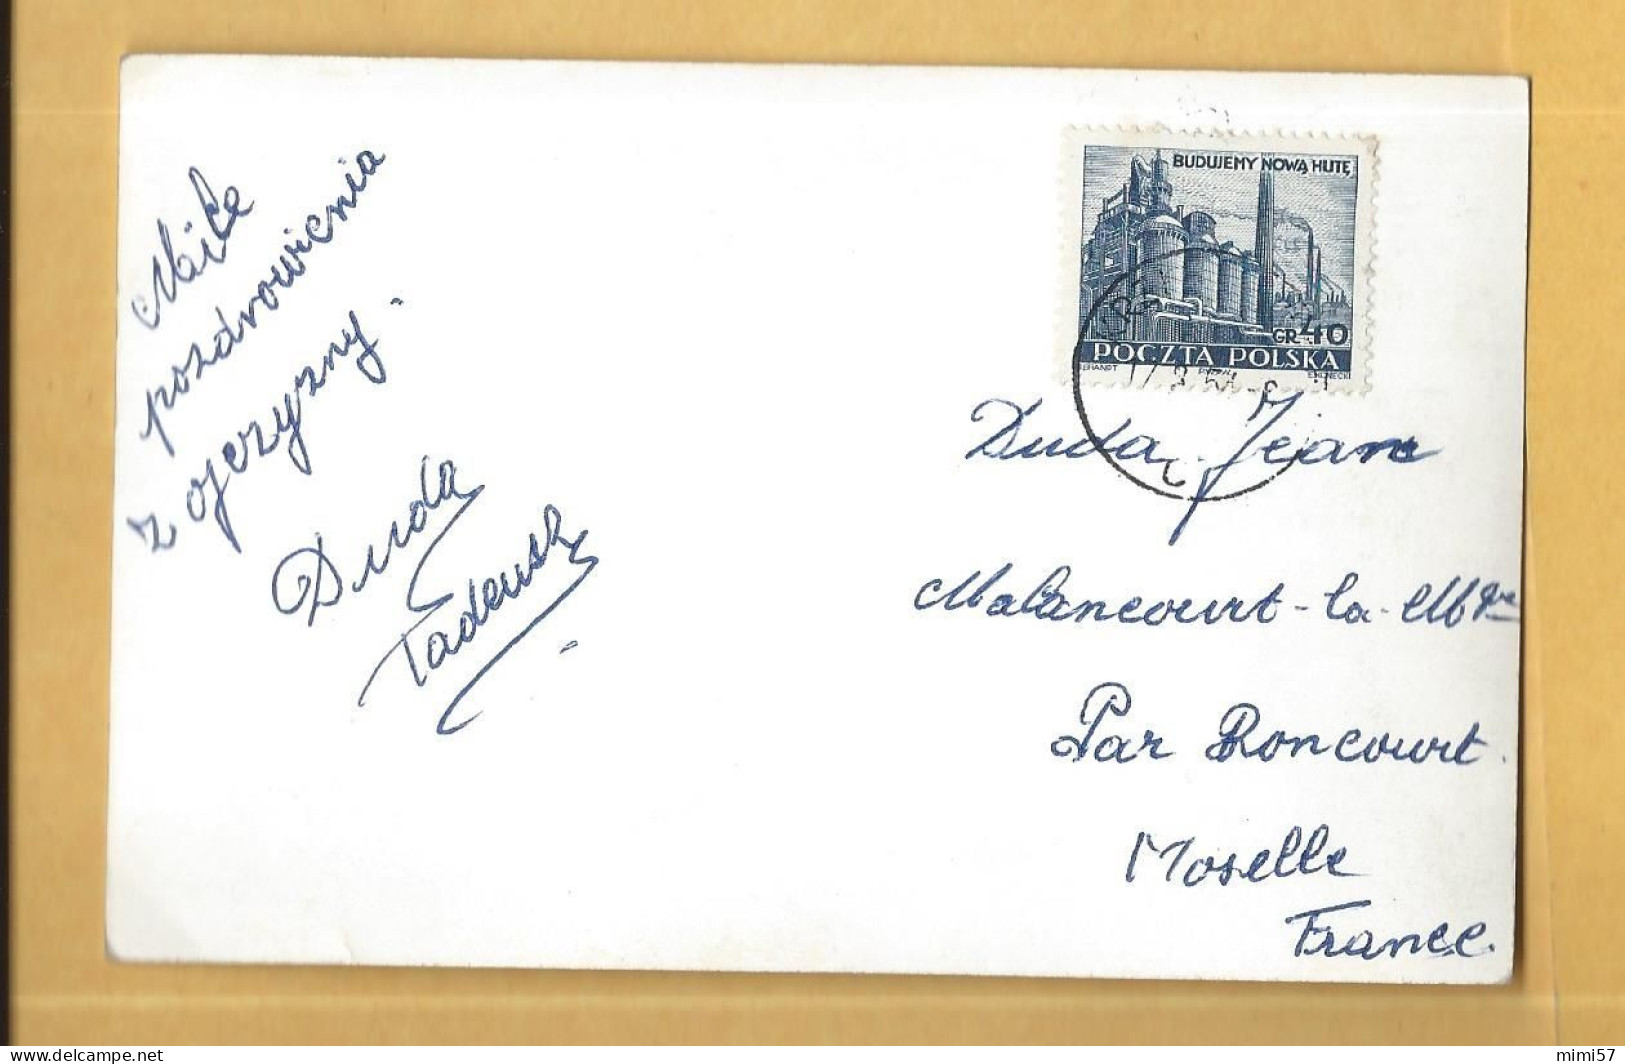 Miłe
pozdrowienia
z ojczyzny.
Duda
Tadeusz
BUDUJEMY NOWĄ HUTĘ
GR 40
POCZTA POLSKA
Duda Jean
Malancourt-la-Mgne
Par Roncourt.
Moselle
France.
mimi57
delcampe.net